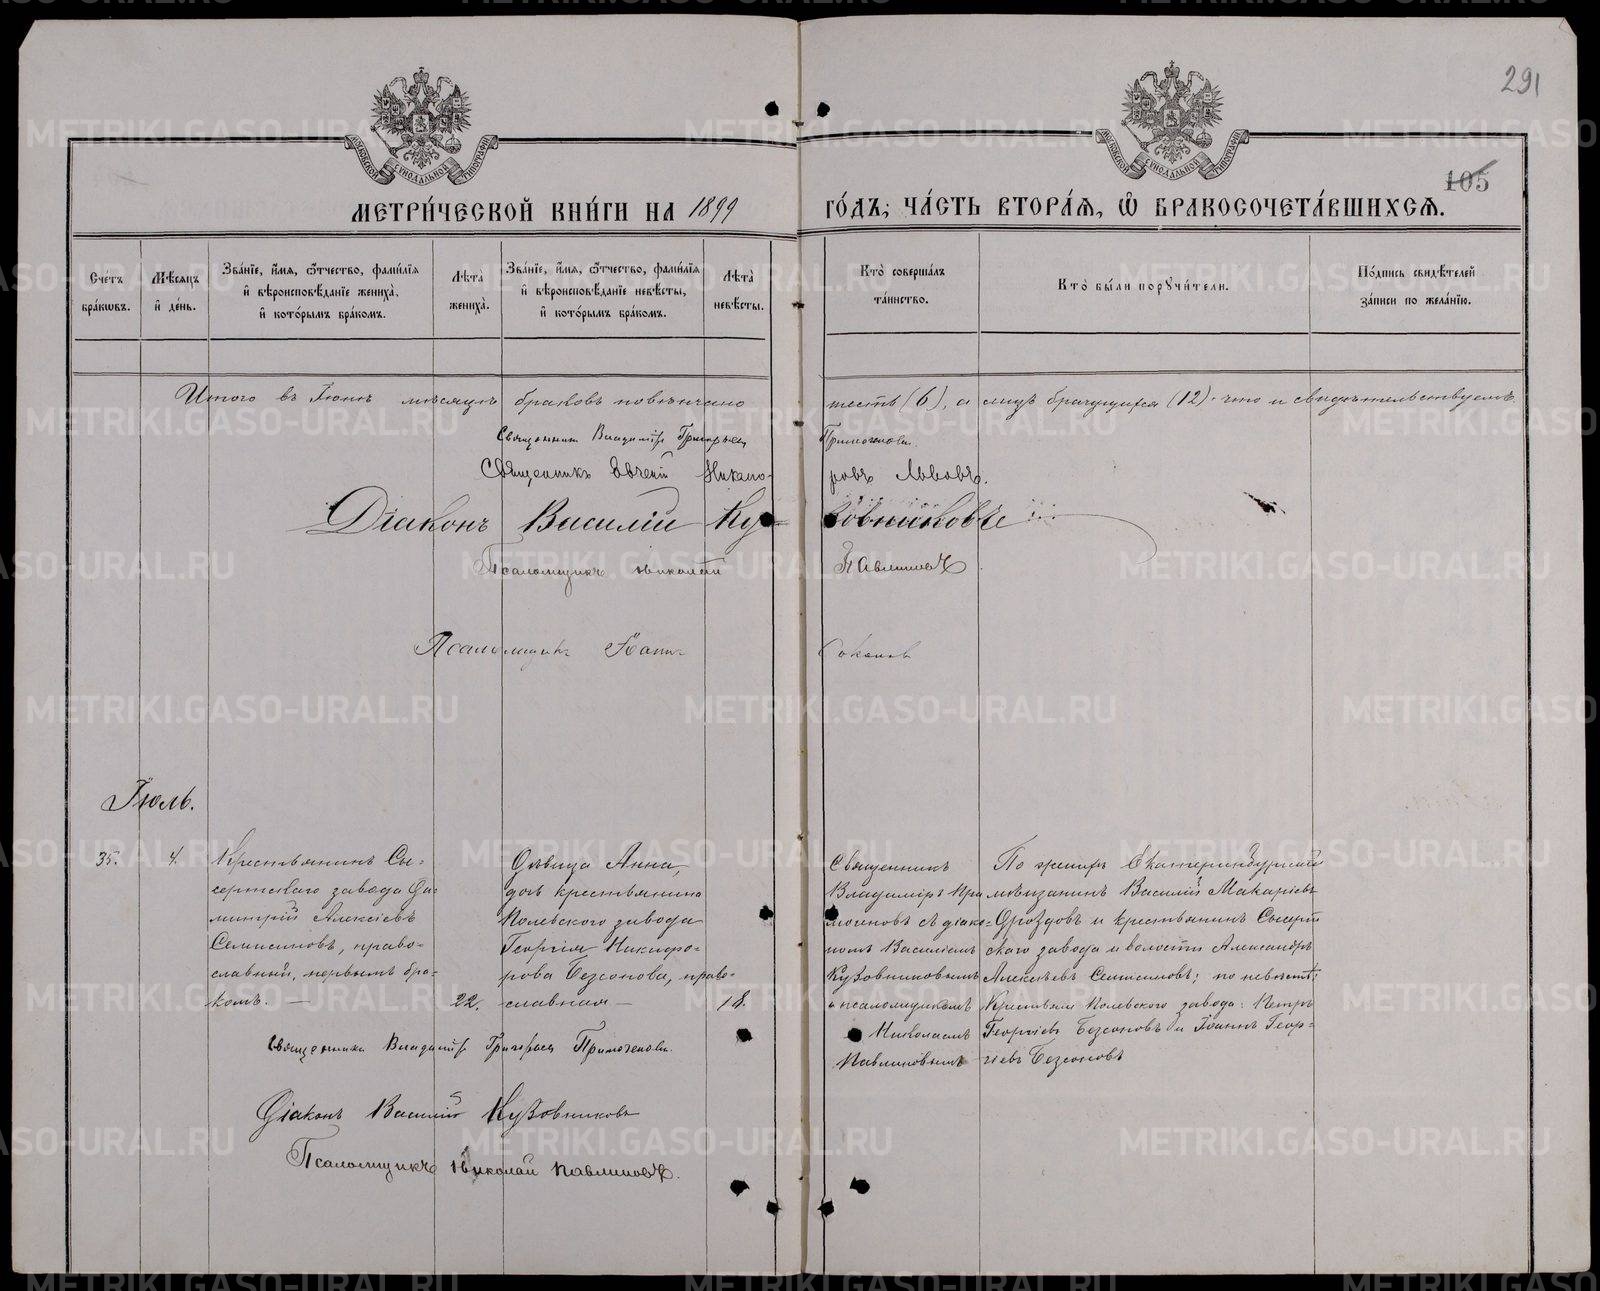 291
105
МОСКОВСКОЙ СѴНОДАЛЬНОЙ ТИПОГРАФІИ
МОСКОВСКОЙ СѴНОДАЛЬНОЙ ТИПОГРАФІИ
МЕТРИ́ЧЕСКОЙ КНИ́ГИ НА 1899 ГО́ДЪ; ЧА́СТЬ ВТОРА́Я, Ѡ БРАКОСОЧЕТА́ВШИХСЯ.
Сче́тъ бра́кѡвъ.
Мѣ́сяцъ и҆ де́нь.
Зва́нїе, и҆́мя, ѻ҆́тчество, фами́лїя и҆ вѣроисповѣ́данїе жениха̀, и҆ кото́рымъ бра́комъ.
Лѣта̀ жениха̀.
Зва́нїе, и҆́мя, ѻ҆́тчество, фами́лїя и҆ вѣроисповѣ́данїе невѣ́сты, и҆ кото́рымъ бра́комъ.
Лѣта̀ невѣ́сты.
Кто̀ соверша́лъ та́инство.
Кто̀ бы́ли порꙋчи́тели.
По́дпись свидѣ́телей за́писи по жела́нїю.
Итого въ Іюнѣ мѣсяцѣ браковъ повѣнчано шесть (6), а лицъ брачущихся (12). что и свидѣтельствуемъ.
Священникъ Владиміръ Григорьев Примогеновъ.
Священникъ Евгеній Никано-ровъ Львовъ.
Діаконъ Василій Кузовниковъ
Псаломщикъ Николай Павлиновъ
Псаломщикъ Іоаннъ
Іюль.
35.
4.
Крестьянинъ Сы-
сертскаго завода Ди-
митрій Алексіевъ
Семисиновъ, право-
славный, первымъ бра-
комъ. —
22.
Дѣвица Анна,
дочь крестьянина
Полевского завода
Георгія Никифо-
рова Безсонова, право-
славная —
18.
Священникъ
Владиміръ При
могеновъ съ діако-
номъ Василіемъ
Кузовниковымъ
и псаломщикомъ
Николаемъ
Павлиновымъ
По женихѣ Екатеринбургскій
мѣщанинъ Василій Макаріевъ
Дроздовъ и крестьянинъ Сысерт
скаго завода и волости Александръ
Алексѣевъ Семисиновъ; по невѣстѣ:
Крестьяне Полевского завода: Петръ
Георгіевъ Безсоновъ и Іоаннъ Геор-
гіевъ Безсоновъ
Священникъ Владиміръ Григорьев Примогеновъ.
Діаконъ Василій Кузовниковъ
Псаломщикъ Николай Павлиновъ.
METRIKI.GASO-URAL.RU